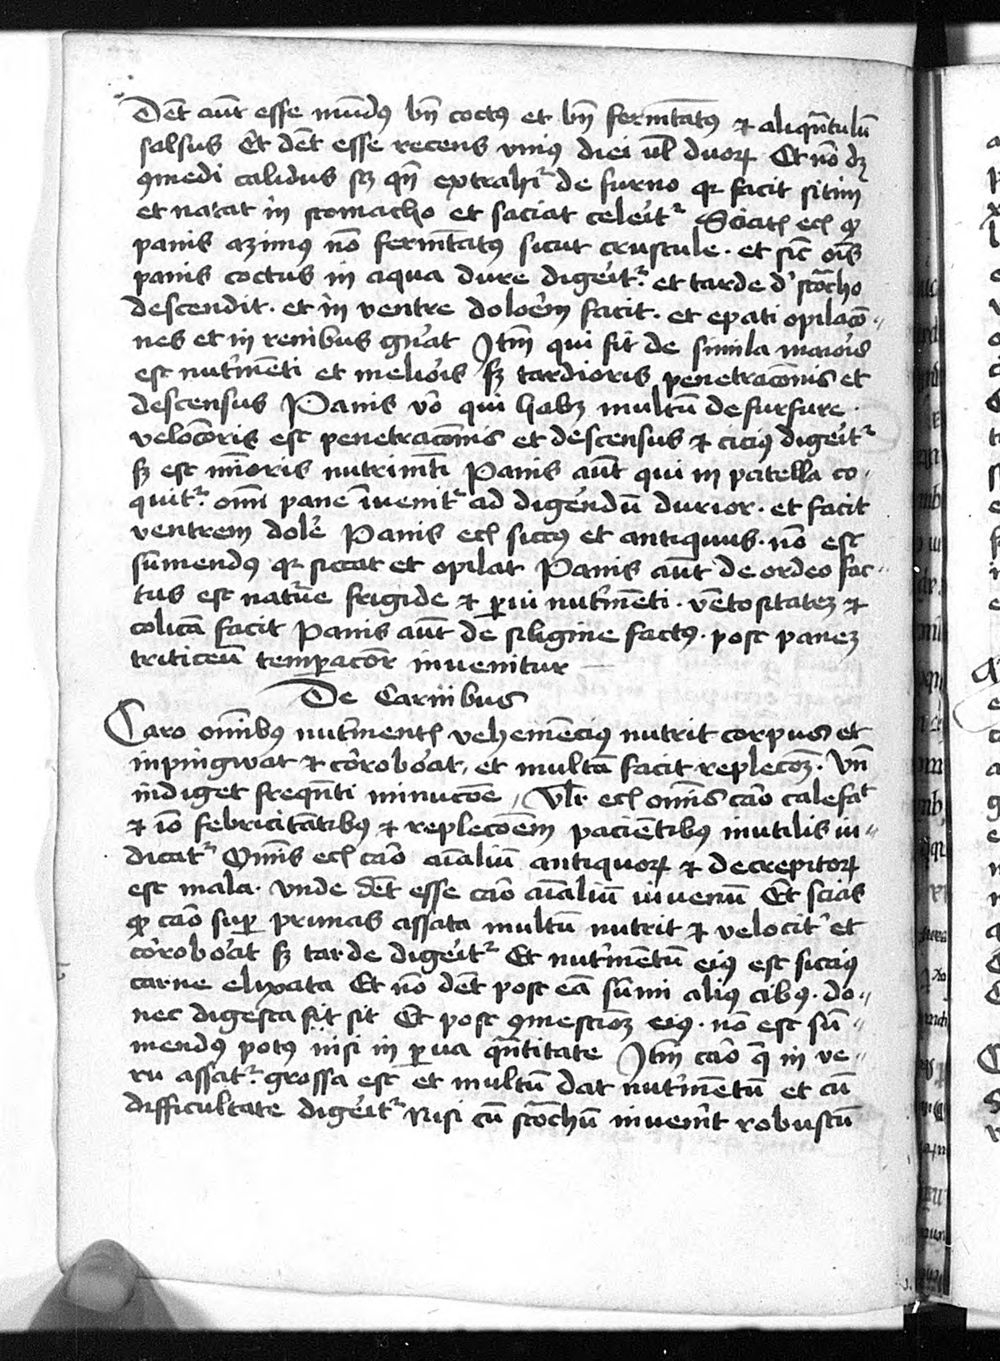 Det aūt esse mūdꝰ bn̄ coctꝰ et bn̄ fermētatꝰ ⁊ aliqn̄tulū
salsus Et det esse recens vniꝰ diei ul̄ duoꝝ Et nō dꝫ
ꝯmedi calidus sꝫ qn̄ extrahiᷣ de furno qꝛ facit sitim
et natat in stomacho et saciat celeit̉ᷣ Sciat̄ ecȷ̄ ꝙ
panis azimꝰ nō fermētatꝰ sicut crustule · et sic̄ ois̄
panis coctus in aqua dure digeit̉ᷣ et tarde d̉ stōcho
descendit · et in ventre doloēm facit · et epati opilacō〃
nes et in renibus gn̉at Itm̄ qui fit de simila maioīs
est nut̉mēti et melioīs sꝫ tardioris penetracōnis et
descensus Panis vō qui habꝫ multū de furfure ·
velocioris est penetracōnis et descensus ⁊ ciciꝰ digeit̉ᷣ
sꝫ est mīoris nutrimēti Panis aūt qui in patella co〃
quitᷣ omī pane īuenitᷣ ad digēdū durior · et facit
ventrem dole̅ Panis ecȷ̄ siccꝰ et antiquus · nō est
sūmendꝰ qꝛ siccat et opilat Panis aūt de ordeo fac〃
tus est natuē frigide ⁊ ꝑui nut̉mēti · vētositateꝫ ⁊
colicā facit Panis aūt de siligine factꝰ · post paneꝫ
triticeū temꝑacior̄ inuenitur
De Carnibus
Caro omībꝰ nut̉ment̄ vehemēciꝰ nutrit corpus et
inpingwat ⁊ cōroboat̉, et multā facit replecōꝫ · Vn̄
indiget freqn̄ti minucōe Vlt̉ ecȷ̄ omīs caō calefat̄
⁊ iō febricitātibꝰ ⁊ replecōēm paciētibꝰ inutilis iu〃
dicatᷣ Omīs ecȷ̄ caō aīaliū antiquoꝝ ⁊ decrepitoꝝ
est mala · vnde det esse caō aīaliū iuuenū Et scias
ꝙ caō suꝑ prunas assata multū nutrit ⁊ velocit̉ et
cōroboat̉ sꝫ tarde digeit̉ᷣ Et nut̉mētū eiꝰ est sicciꝰ
carne elixata Et nō det post eā sūmi aliꝰ cibꝰ · do〃
nec digesta sit Et post ꝯmestiōꝫ eiꝰ · nō est sū〃
mendꝰ potꝰ nisi in ꝑua qn̄titate Itm̄ caō q̄ in ve〃
ru assatᷣ grossa est et multū dat nut̉mētū et cū
difficultate digeit̉ᷣ Nisi cū stōchū inuenit̉ robustū